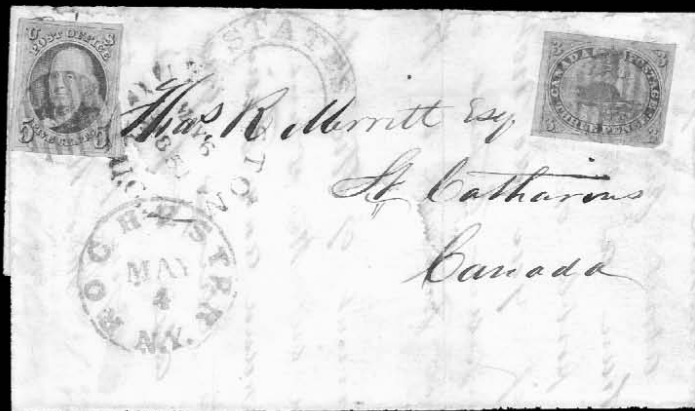 U S
POST OFFICE
5 FIVE CENTS 5
3 CANADA POSTAGE 3
3 THREE PENCE 3
STATES
Thos. R. Merritt Esq
St. Catharines
Canada
ROCHESTER
MAY
4
N.Y.